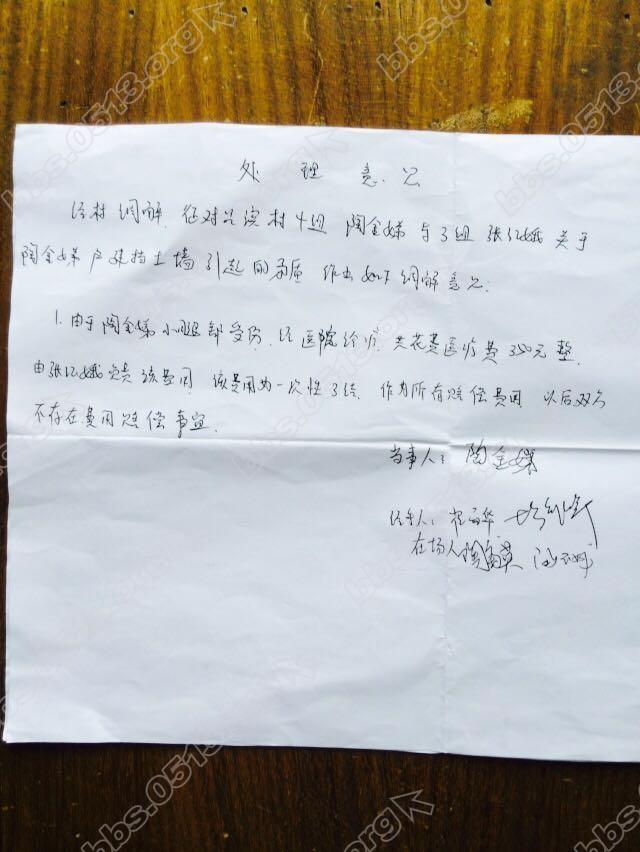 处理意见
经村调解,征对兴 村4组 陶金娣与3组张 娥关于
陶金娣户建挡土墙引起的矛盾 作出如下调解意见:
1.由于陶金娣小 部受伤,经医院诊疗,共花费医疗费350元整,
由张 娥 责该费用,该费用为一次性了结,作为所有赔偿费用,以后双方
不存在费用赔偿事宜.
当事人: 陶金娣
经手人: 华
在场人 陶
bbs.0513.org
bbs.0513.org
bbs.0513.org
bbs.0513.org
bbs.0513.org
bbs.0513.org